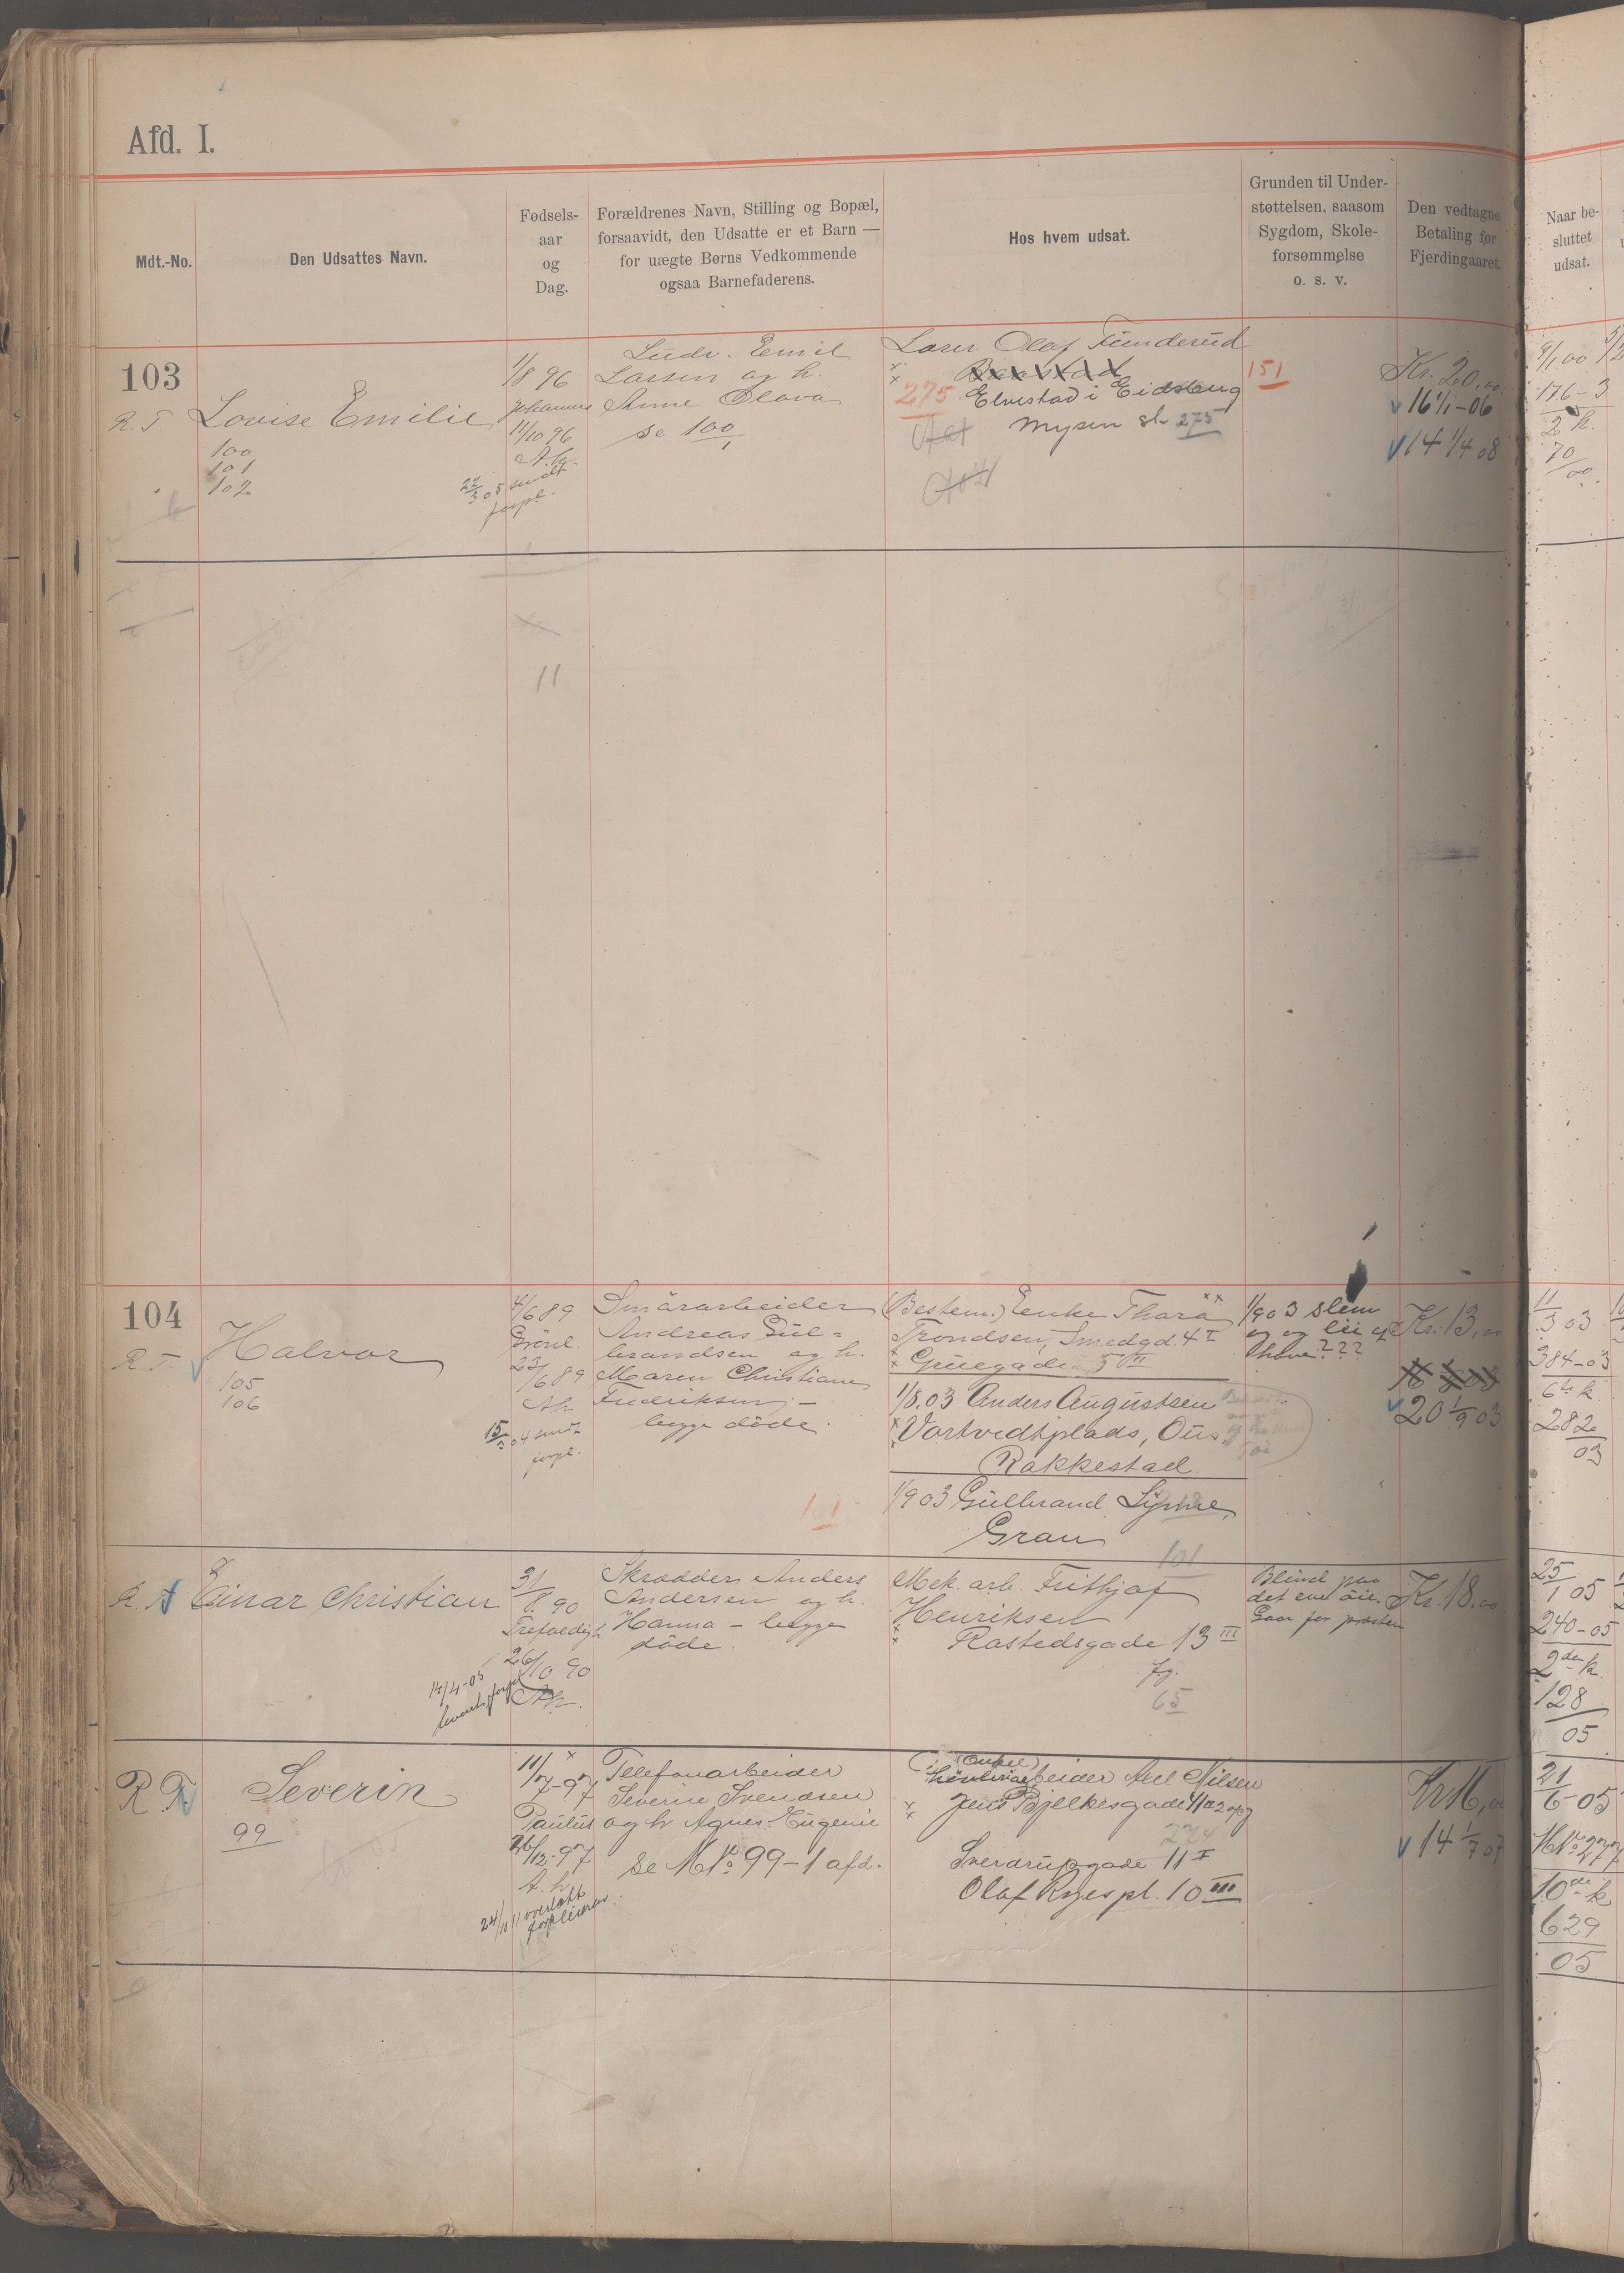 Afd. I.
Mdt.-No.
Den Udsattes Navn.
Fødsels-
aar
og
Dag.
Forældrenes Navn, Stilling og Bopæl,
forsaavidt, den Udsatte er et Barn —
for uægte Børns Vedkommende
ogsaa Barnefaderens.
Hos hvem udsat.
Grunden til Under-
støttelsen, saasom
Sygdom, Skole-
forsømmelse
o. s. v.
Den vedtagne
Betaling for
Fjerdingaaret.
Naar be-
sluttet
udsat.
103
R. T.
Lovise Emilie
100
101
102
1/8 96
Johannes
11/10 96
A.h.
22/3 05 smdlt
forpl.
Ludv. Emil
Larsen og h.
Anne Olava
se 100
Lærer Olaf Funderud
275 Elvestad i Eidsberg
Mysen st. 275
151
Kr. 20,00
16 1/1-06
14 1/4 08
9/1 00
176-3
2 k.
70
00
11
104
R. T.
Halvor
105
106
4/6 89
Grönl.
23/6 89
Ah
15/3 04 smd
forpl.
Smörarbeider
Andreas Gul-
brandsen og h.
Maren Christiane
Fredriksen -
begge döde.
(Bestem.) Enke Thara
Trondsen, Smedgd. 4 I
Gruegade 5 VII
1/8.03 Anders Augustsen
Vortvedtplads, Ous
Rakkestad
1/9 03 Gulbrand Lynne,
Gran
101
1/9 03 slem
og lei af
???
Kr. 13,00
20 1/9 03
11/3 03
384-03
6te k.
282
03
R. T.
Einar Christian
31/8 90
Trefoldigh
26/10 90
Ah.
14/4-05
Skrædder Anders
Andersen og h.
Hanna - begge
döde.
Mek. arb. Frithjof
Henriksen
Rostedsgade 13 III
fg.
65
Blind paa
det ene öie.
Gaar for præsten
Kr. 18,00
25/1 05
240-05
2den k.
128
05
R T
Severin
99
11/7-97
Paulus
26/12-97
A. h.
24/10 11 overlatt
forpleieren.
Telefonarbeider
Severin Svendsen
og h Agnes Eugenie
se M No 99-1 afd.
(Onkel)
Axel Nilsen
Jens Bjelkesgade 11a 2 opg
274
Sverdrupgade 11 I
Olaf Ryes pl. 10 III
Kr 16,00
14 1/7 07
21/6-05
M No 277
10de k
629
05